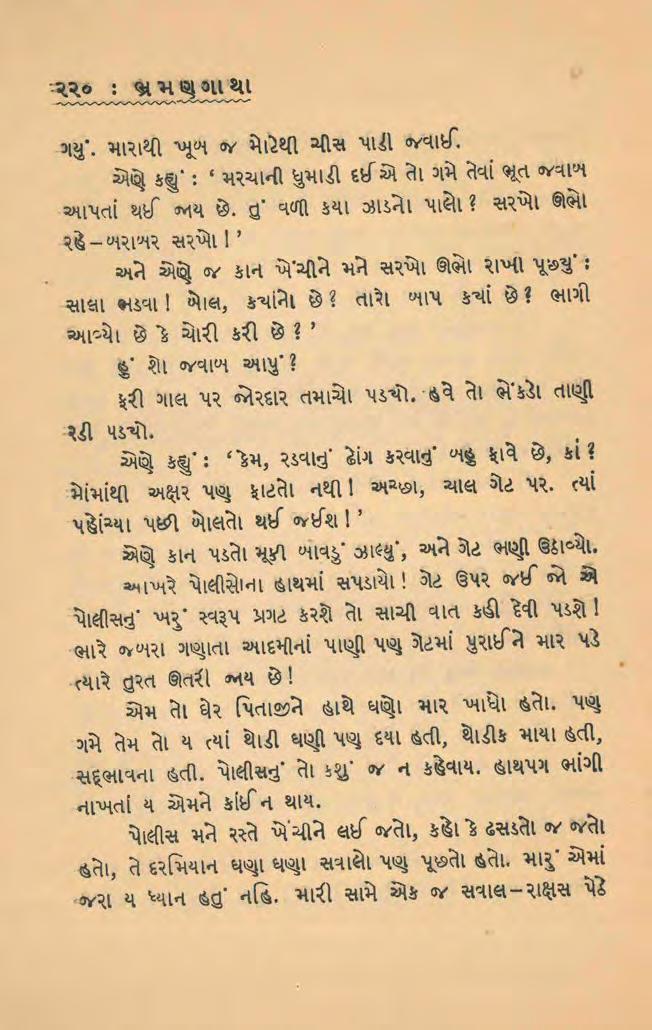 ૨૨૦ : ભ્રમણગાથા
ગયું. મારાથી ખૂબ જ મોટેથી ચીસ પાડી જવાઈ.
એણે કહ્યું : ‘ મરચાની ધુમાડી દઈએ તો ગમે તેવાં ભૂત જવાબ
આપતાં થઈ જાય છે. તું વળી કયા ઝાડનો પાલો ? સરખો ઊભો
રહે – બરાબર સરખો ! ’
અને એણે જ કાન ખેંચીને મને સરખો ઊભો રાખી પૂછ્યું :
સાલા ભડવા ! બોલ, કયાંનો છે ? તારો બાપ કયાં છે ? ભાગી
આવ્યો છે કે ચોરી કરી છે ? ’
હું શો જવાબ આપું ?
ફરી ગાલ પર જોરદાર તમાચો પડચો. હવે તો ભેંકડો તાણી
રડી પડચો.
એણે કહ્યું : ‘ કેમ, રડવાનું ઢોંગ કરવાનું બહુ ફાવે છે, કાં ?
મોંમાંથી અક્ષર પણ ફાટતો નથી ! અચ્છા, ચાલ ગેટ પર. ત્યાં
પહોંચ્યા પછી બોલતો થઈ જઈશ ! ’
એણે કાન પડતો મૂકી બાવડું ઝાલ્યું, અને ગેટ ભણી ઉઠાવ્યો.
આખરે પોલીસોના હાથમાં સપડાયો ! ગેટ ઉપર જઈ જો એ
પોલીસનું ખરું સ્વરૂપ પ્રગટ કરશે તો સાચી વાત કહી દેવી પડશે !
ભારે જબરા ગણાતા આદમીનાં પાણી પણ ગેટમાં પુરાઈને માર પડે
ત્યારે તુરત ઊતરી જાય છે !
એમ તો ઘેર પિતાજીને હાથે ઘણો માર ખાધો હતો. પણ
ગમે તેમ તો ય ત્યાં થોડી ઘણી પણ દયા હતી, થોડીક માયા હતી,
સદ્ભાવના હતી. પોલીસનું તો કશું જ ન કહેવાય. હાથપગ ભાંગી
નાખતાં ય એમને કાંઈ ન થાય.
પોલીસ મને રસ્તે ખેંચીને લઈ જતો, કહો કે ઢસડતો જ જતો
હતો, તે દરમિયાન ઘણા ઘણા સવાલો પણ પૂછતો હતો. મારું એમાં
જરા ય ધ્યાન હતું નહિ. મારી સામે એક જ સવાલ – રાક્ષસ પેઠે